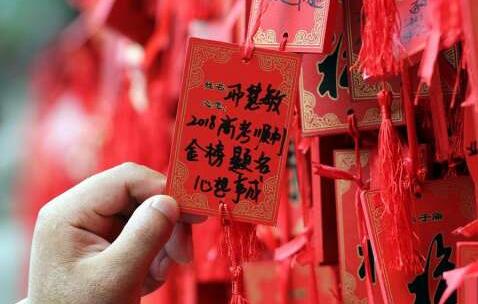 姓名 邢慧敏
心愿
2018高考顺利
金榜题名
心想事成
子庙